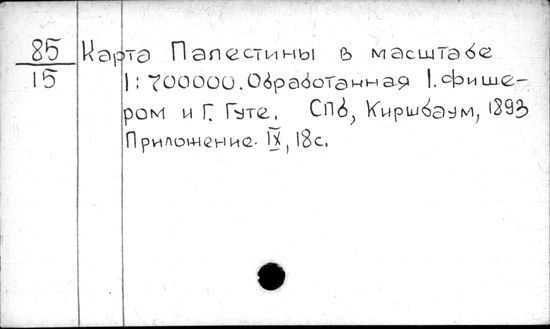 85
15
Карта Палестины в масштабе
1:700000. Обработанная I. Фише-
ром и Г. Гуте. СПб, Киршбаум, 1893
Приложение. IX, 18с.